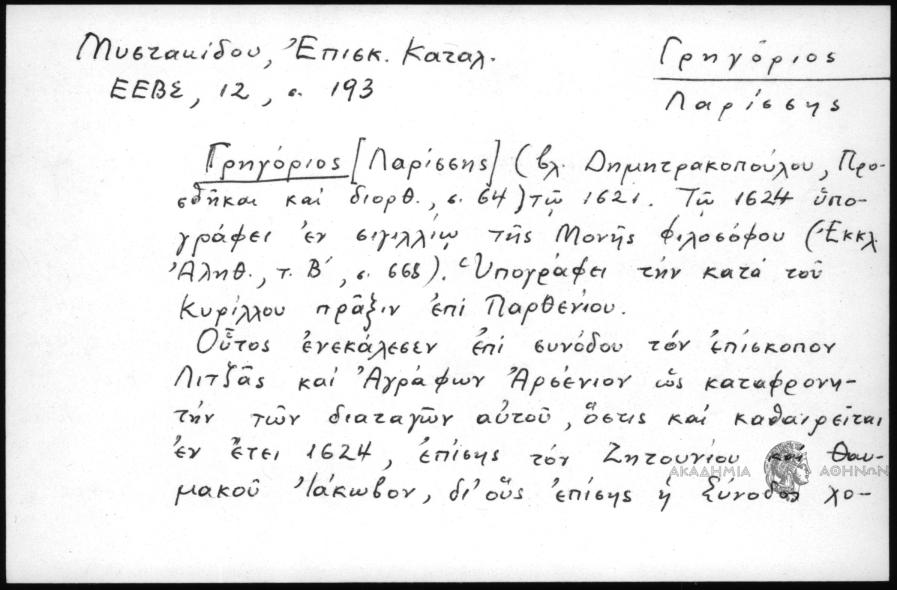 Μυστακίδου, Ἐπισκ. Καταλ.
ΕΕΒΣ, 12, σ. 193
Γρηγόριος
Λαρίσσης
Γρηγόριος [Λαρίσσης] (βλ. Δημητρακοπούλου, Προ-
σθῆκαι καί διορθ., σ. 64) τῷ 1621. Τῷ 1624 ὑπο-
γράφει ἐν σιγιλλίῳ τῆς Μονῆς Φιλοσόφου (Ἐκκλ.
Ἀληθ., τ. Β΄, σ. 668). Ὑπογράφει τήν κατά τοῦ
Κυρίλλου πρᾶξιν ἐπί Παρθενίου.
Οὗτος ἐνεκάλεσεν ἐπί συνόδου τόν ἐπίσκοπον
Λιτζᾶς καί Ἀγράφων Ἀρσένιον ὡς καταφρονη-
τήν τῶν διαταγῶν αὐτοῦ, ὅστις καί καθαιρεῖται
ἐν ἔτει 1624, ἐπίσης τόν Ζητουνίου καί Θαυ-
μακοῦ Ἰάκωβον, δι' οὕς ἐπίσης ἡ Σύνοδος χο-
ΑΚΑΔΗΜΙΑ ΑΘΗΝΩΝ